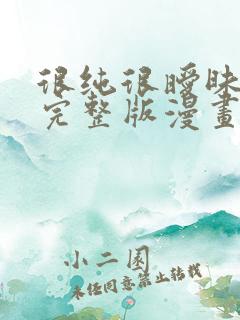 很纯很暧昧
完整版漫畫
小二围
未经同意禁止转载